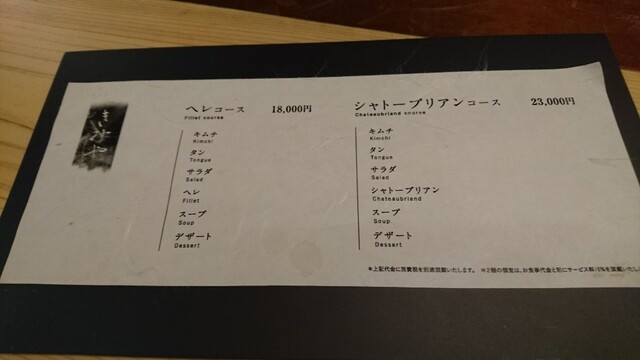 ヘレコース 18,000円
Fillet course
キムチ
Kimchi
タン
Tongue
サラダ
Salad
ヘレ
Fillet
スープ
Soup
デザート
Dessert
シャトーブリアンコース 23,000円
Chateaubriand course
キムチ
Kimchi
タン
Tongue
サラダ
Salad
シャトーブリアン
Chateaubriand
スープ
Soup
デザート
Dessert
*上記代金に消費税を別途頂戴いたします。 *2階の個室は、お食事代金と別にサービス料